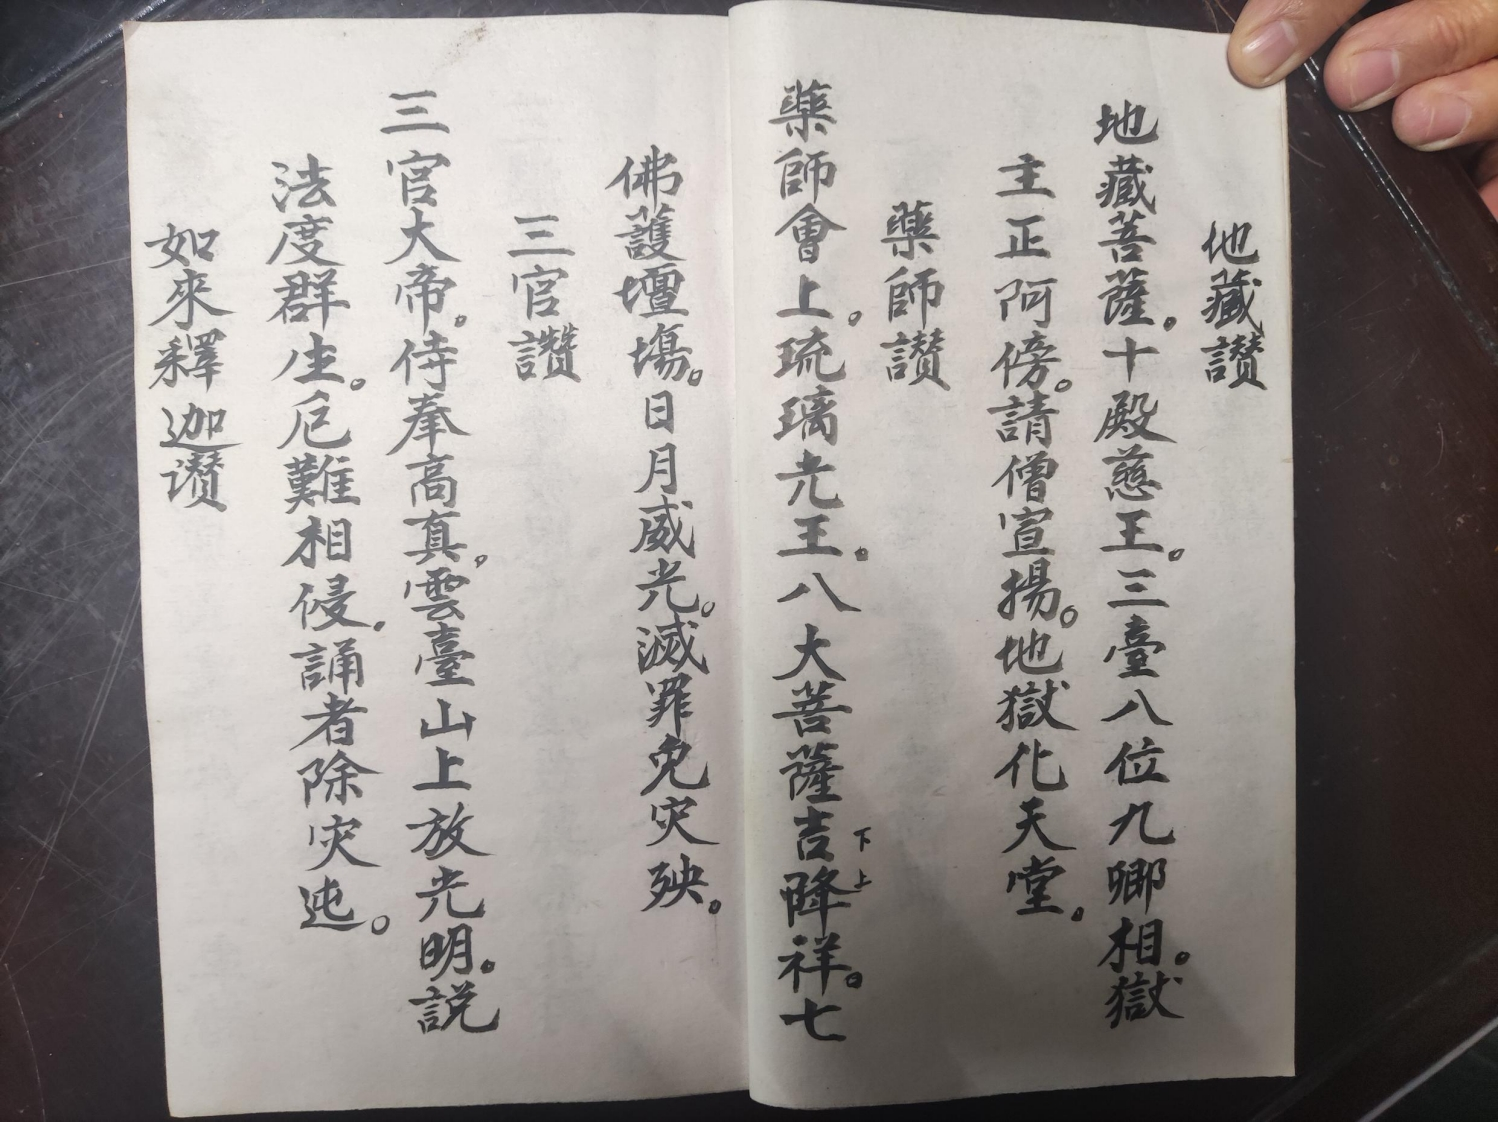 地藏讃
地藏菩薩。十殿慈王。三臺八位九卿相。獄
主正阿傍。請僧宣揚。地獄化天堂。
藥師讃
藥師會上。琉璃光王。八大菩薩吉降祥。七
下上
佛護壇塲。日月威光。滅罪免灾殃。
三官讃
三官大帝。侍奉高真。雲臺山上放光明。説
法度群生。厄難相侵。誦者除灾迍。
如來釋迦讃